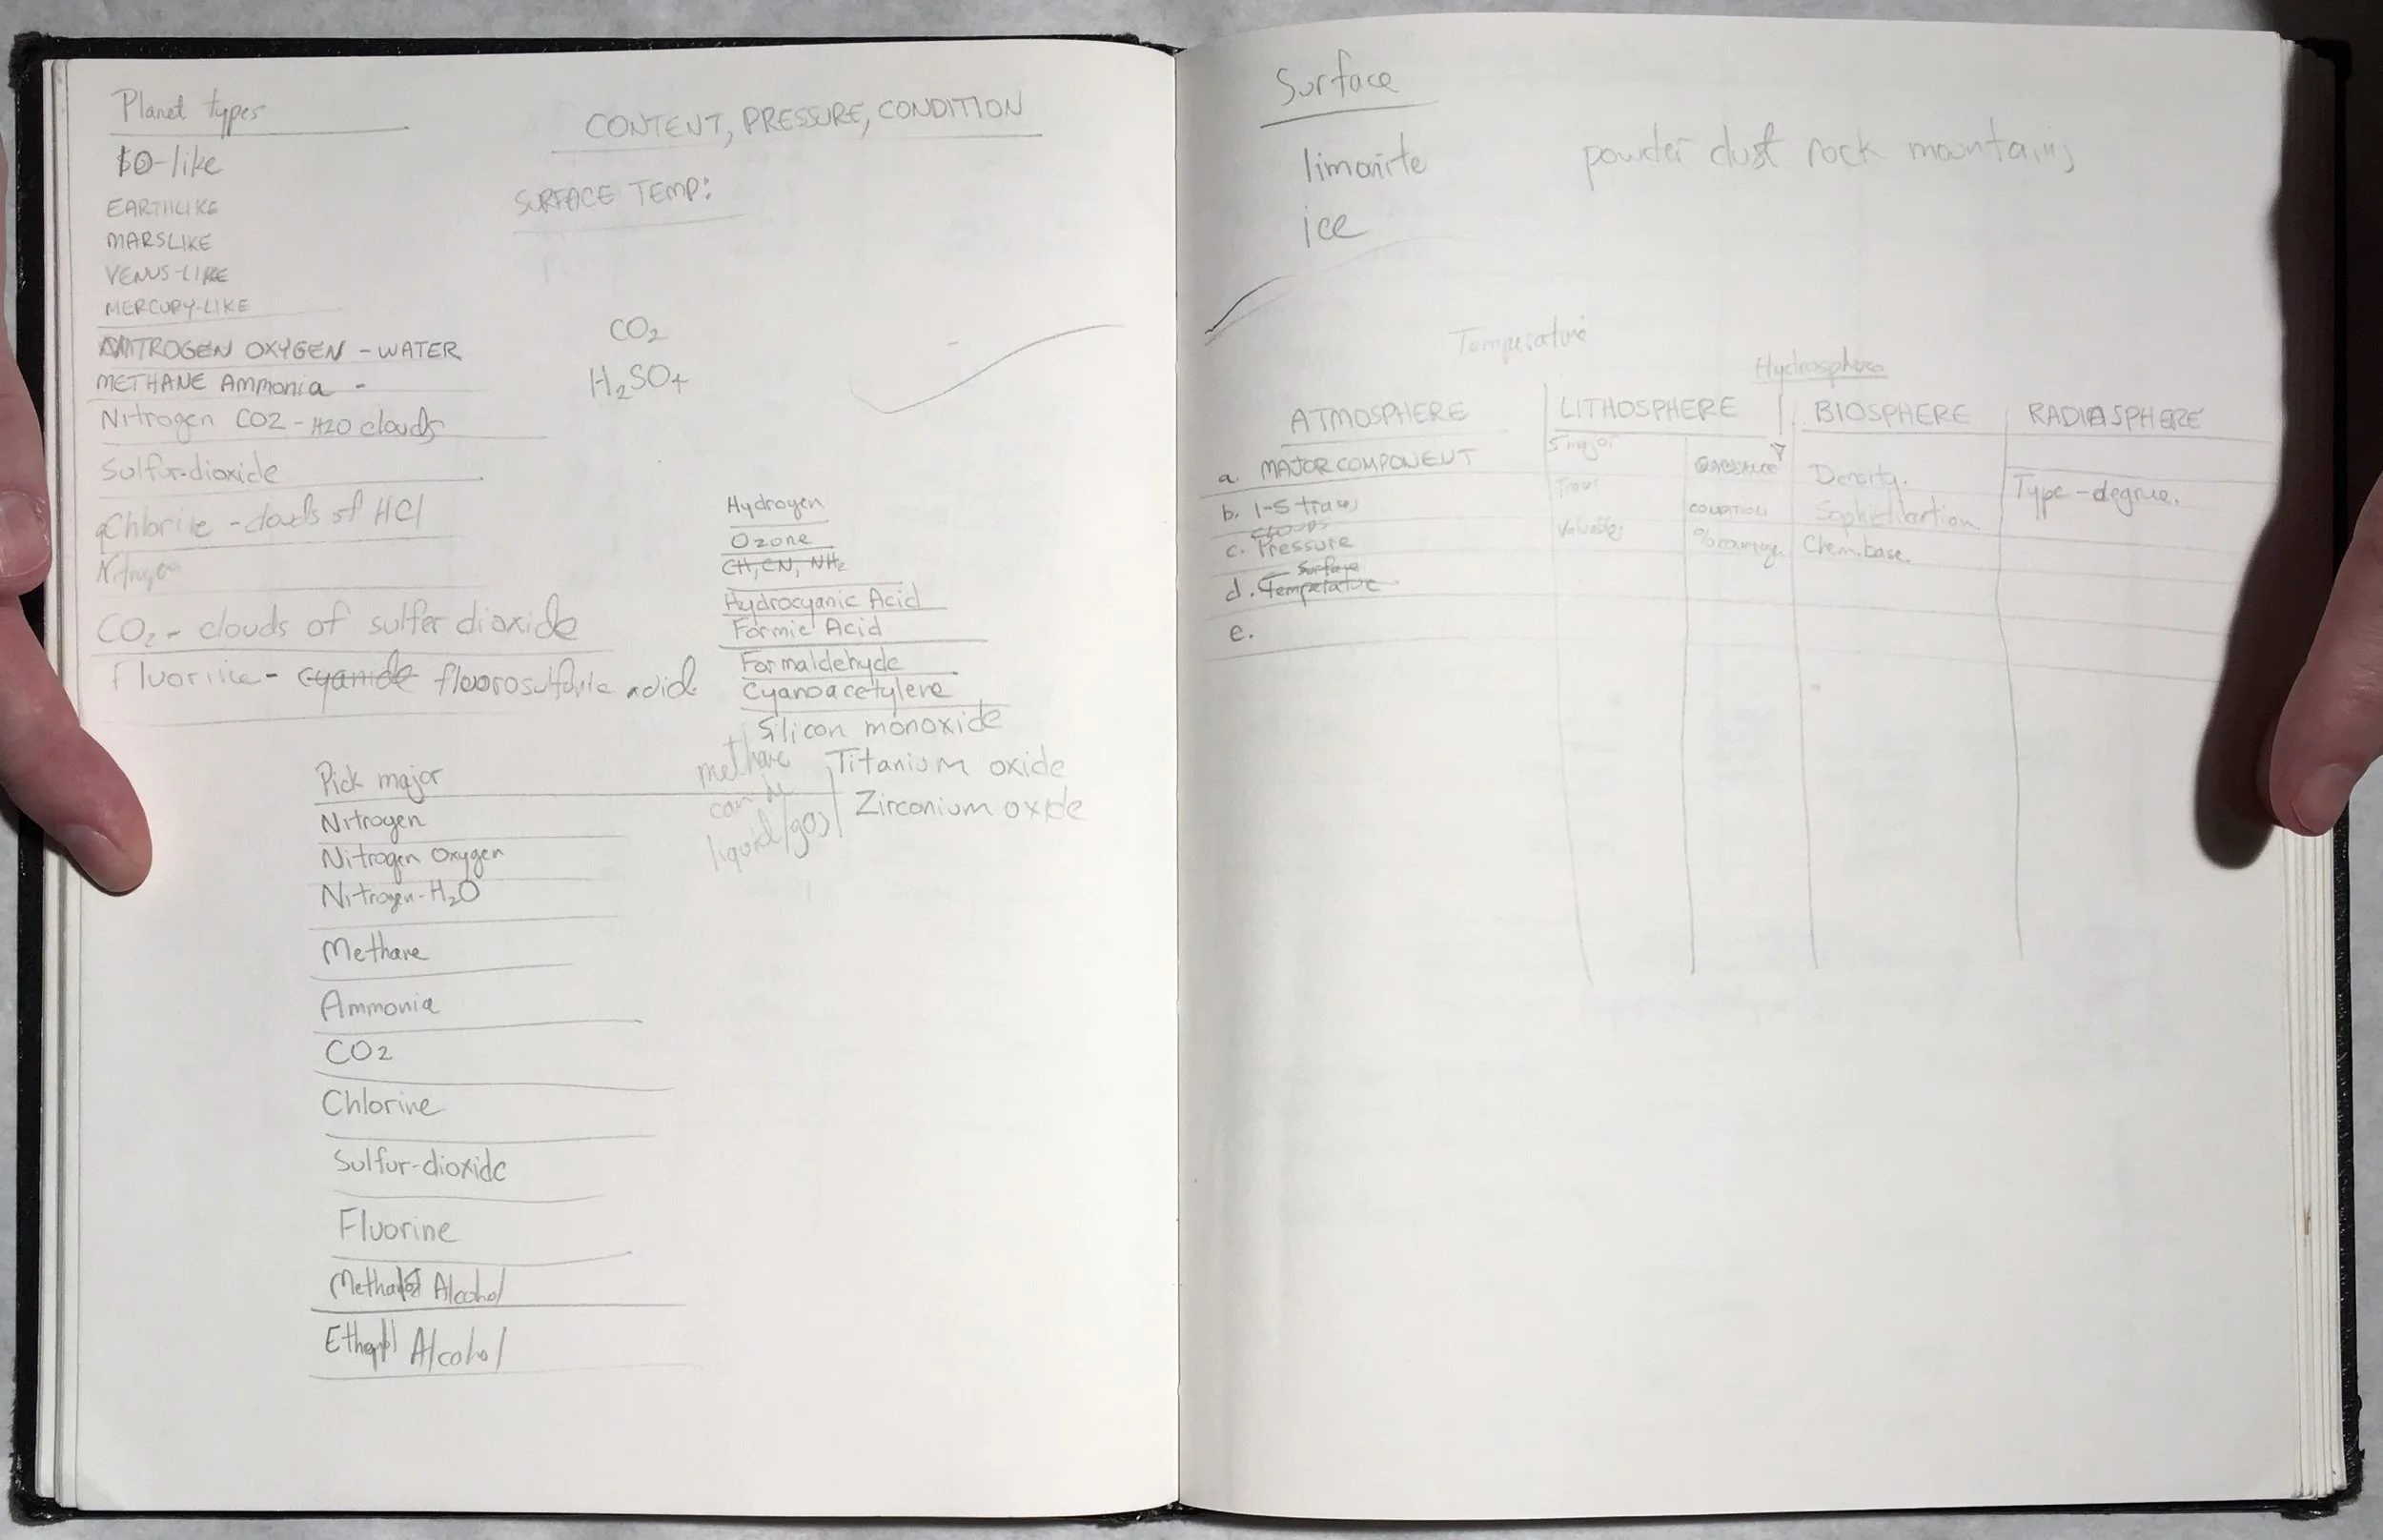 Planet types
IO-like
EARTHLIKE
MARSLIKE
VENUS-LIKE
MERCURY-LIKE
NITROGEN OXYGEN - WATER
METHANE Ammonia -
Nitrogen CO2 - H2O clouds
Sulfur-dioxide
Chlorine - clouds of HCl
Nitrogen
CO2 - clouds of sulfer dioxide
Fluorine - cyanide fluorosulfuric acid
CONTENT, PRESSURE, CONDITION
SURFACE TEMP:
CO2
H2SO4
Hydrogen
Ozone
CH, CN, NH2
Hydrocyanic Acid
Formic Acid
Formaldehyde
Cyanoacetylene
Silicon monoxide
Titanium oxide
Zirconium oxide
methane
can be
liquid/gas
Pick major
Nitrogen
Nitrogen Oxygen
Nitrogen-H2O
Methane
Ammonia
CO2
Chlorine
Sulfur-dioxide
Fluorine
Alcohol
Alcohol
Surface
limonite
ice
powder dust rock mountains
Temperature
Hydrosphere
ATMOSPHERE
a. MAJOR COMPONENT
b. 1-5 traces
CLOUDS
c. Pressure
Surface
d. Temperature
e.
LITHOSPHERE
5 major
Trace
Valuables
SUBSTANCE
CONDITION
% coverage
BIOSPHERE
Density.
Sophistication
Chem. base.
RADIASPHERE
Type - degree.